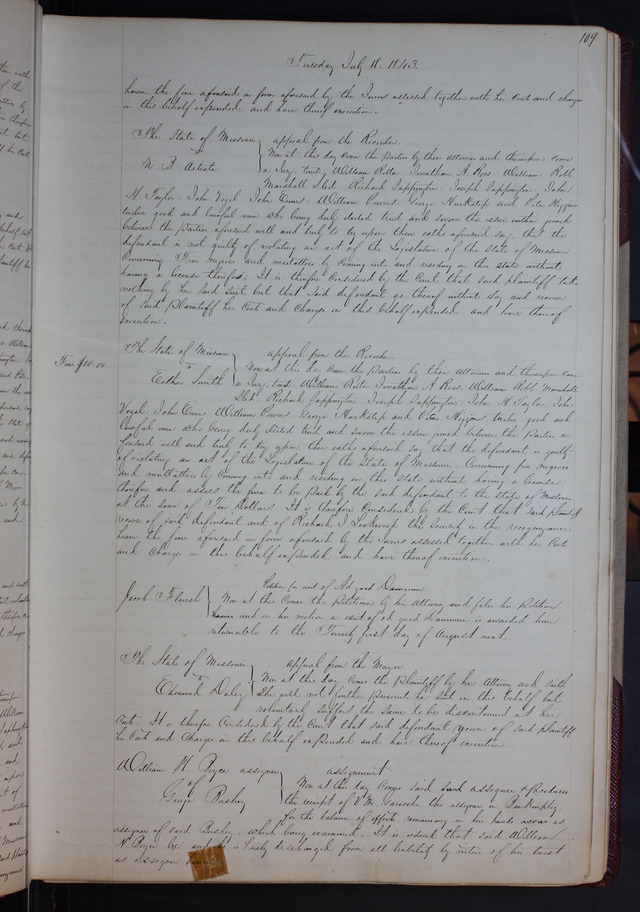 109
Tuesday July 11. 1843.
herein the fine aforesaid in form aforesaid by the Jurors assessed together with her Costs and charges
in this behalf expended and have thereof execution.
The State of Missouri appeal from the Recorder.
vs Now at this day come the parties by their attornies and thereupon come
N. B. a Jury, to wit, William Ritter Jonathan A Ross William Robb
Marshall Sled Richard Sappington Joseph Sappington John
H. Taylor John Vogel John William Powers George Huckstep and Peter Higgins
twelve good and lawful men who being duly elected tried and sworn the issue within joined
between the parties aforesaid well and truly to try upon their oaths aforesaid say, that the
defendant is not guilty of violating an act of the Legislature of the State of Missouri
Concerning Free negroes and mulattoes by coming into and residing in this State without
having a license therefor. It is therefore Considered by the Court that said plaintiff take
nothing by her said suit but that said defendant go thereof without day and recover
of said plaintiff her Costs and Charges in this behalf expended and have thereof
execution.
The State of Missouri appeal from the Recorder
Fine $10.00
vs Now at this day Come the parties by their Attornies and thereupon come
Esther Smith a Jury, to wit William Ritter Jonathan A Ross William Robb Marshall
Sled Richard Sappington Joseph Sappington John H. Taylor John
Vogel John William Powers George Huckstep and Peter Higgins twelve good and
lawful men who being duly elected tried and sworn the issue joined between the parties a-
foresaid well and truly to try upon their oaths aforesaid say that the defendant is guilty
of violating an act of the Legislature of the State of Missouri Concerning free negroes
and mulattoes by Coming into and residing in this State without having a license
therefor and assess the fine to be paid by the said defendant to the State of Missouri
at the sum of Ten Dollars. It is therefore Considered by the Court that said plaintiff
recover of said defendant and of Richard J the security in the recognizance
herein the fine aforesaid in form aforesaid by the Jurors assessed together with her Costs
and Charges in this behalf expended and have thereof execution.
Petition for writ of Ad quod Damnum
Jacob Now at this Comes the Petitioner by his Attorney and files his Petition
herein and on his motion a writ of ad quod Damnum is awarded him
returnable to the Twenty first day of August next.
The State of Missouri appeal from the Mayor
vs Now at this day Comes the plaintiff by her Attorney and saith
Edmund Daley She will not further prosecute her suit in this behalf but
voluntarily suffers the same to be discontinued at her
Costs. It is therefore Considered by the Court that said defendant recover of said plaintiff
his Costs and Charges in this behalf expended and have thereof execution
William N. Pryce assignee assignment
of Now at this day Comes said said assignee & produces
George Busby the receipt of the assignee in Bankruptcy
for the balance of effects remaining in his hands as
assignee of said Busby, which being examined. It is ordered that said William
N Pryce be and he is hereby discharged from all liability by virtue of his trust
as assignee